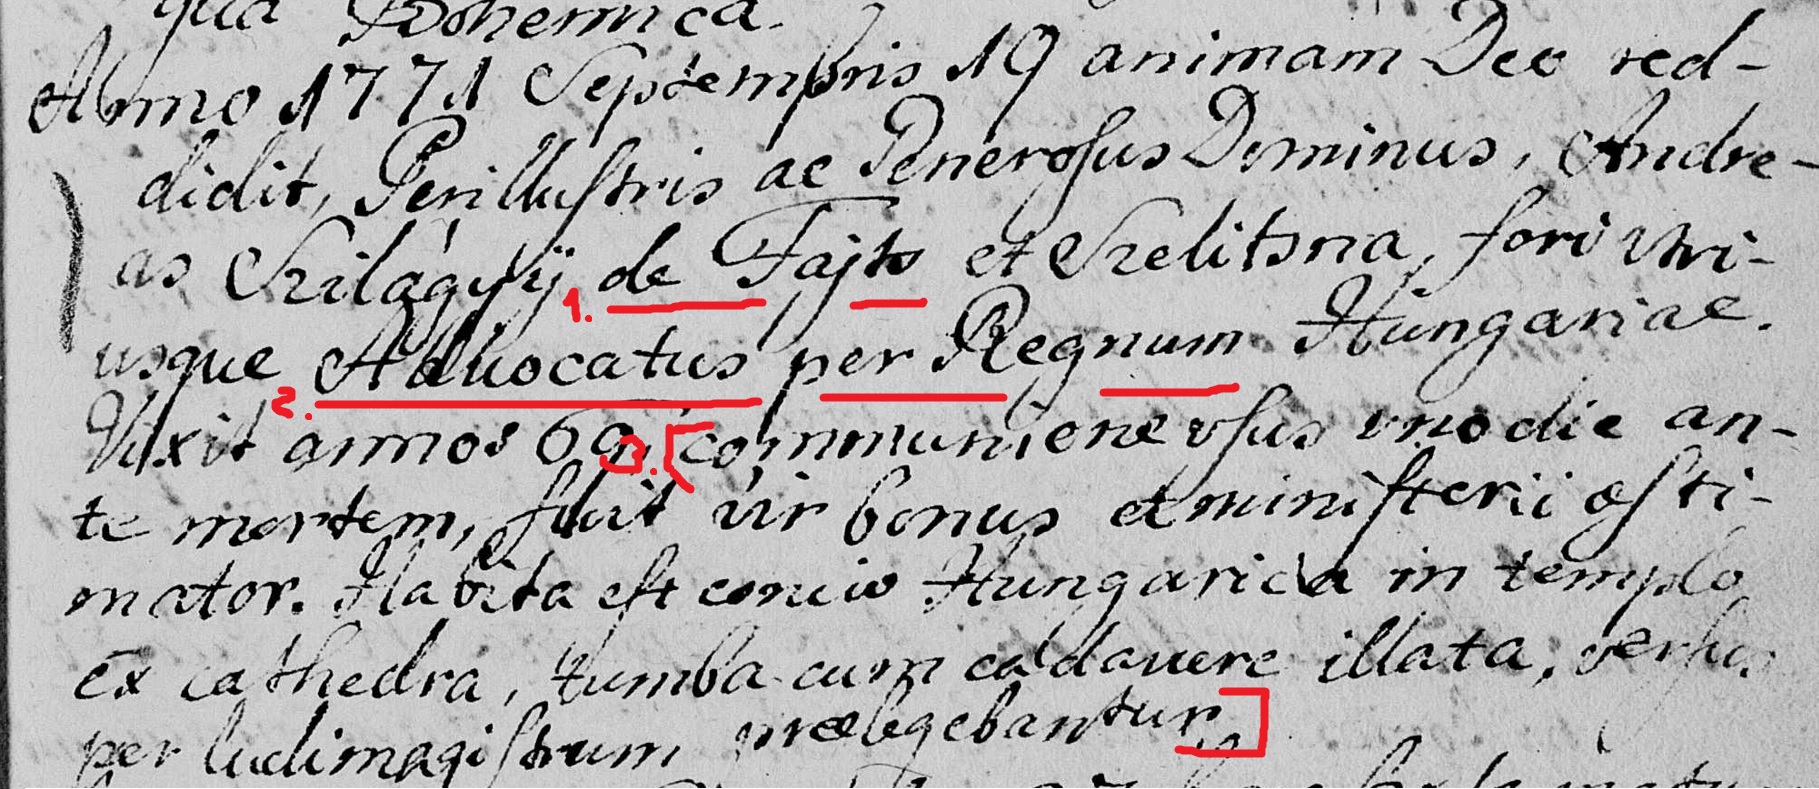 qua Bohemica.
Anno 1771 Septembris 19 animam Deo red-
didit, Perillustris ac Generosus Dominus, Andre-
as Szilágyij de Fajts et Szelitsna, fori utri-
1.
usque Advocatus per Regnum Hungariae.
2.
Vixit annos 60, communione usus uno die an-
3.
te mortem, fuit vir bonus et ministerii æsti-
mator. Habita est concio Hungarica in templo
ex cathedra, tumba cum cadavere illata, versus
per ludimagistrum prælegebantur